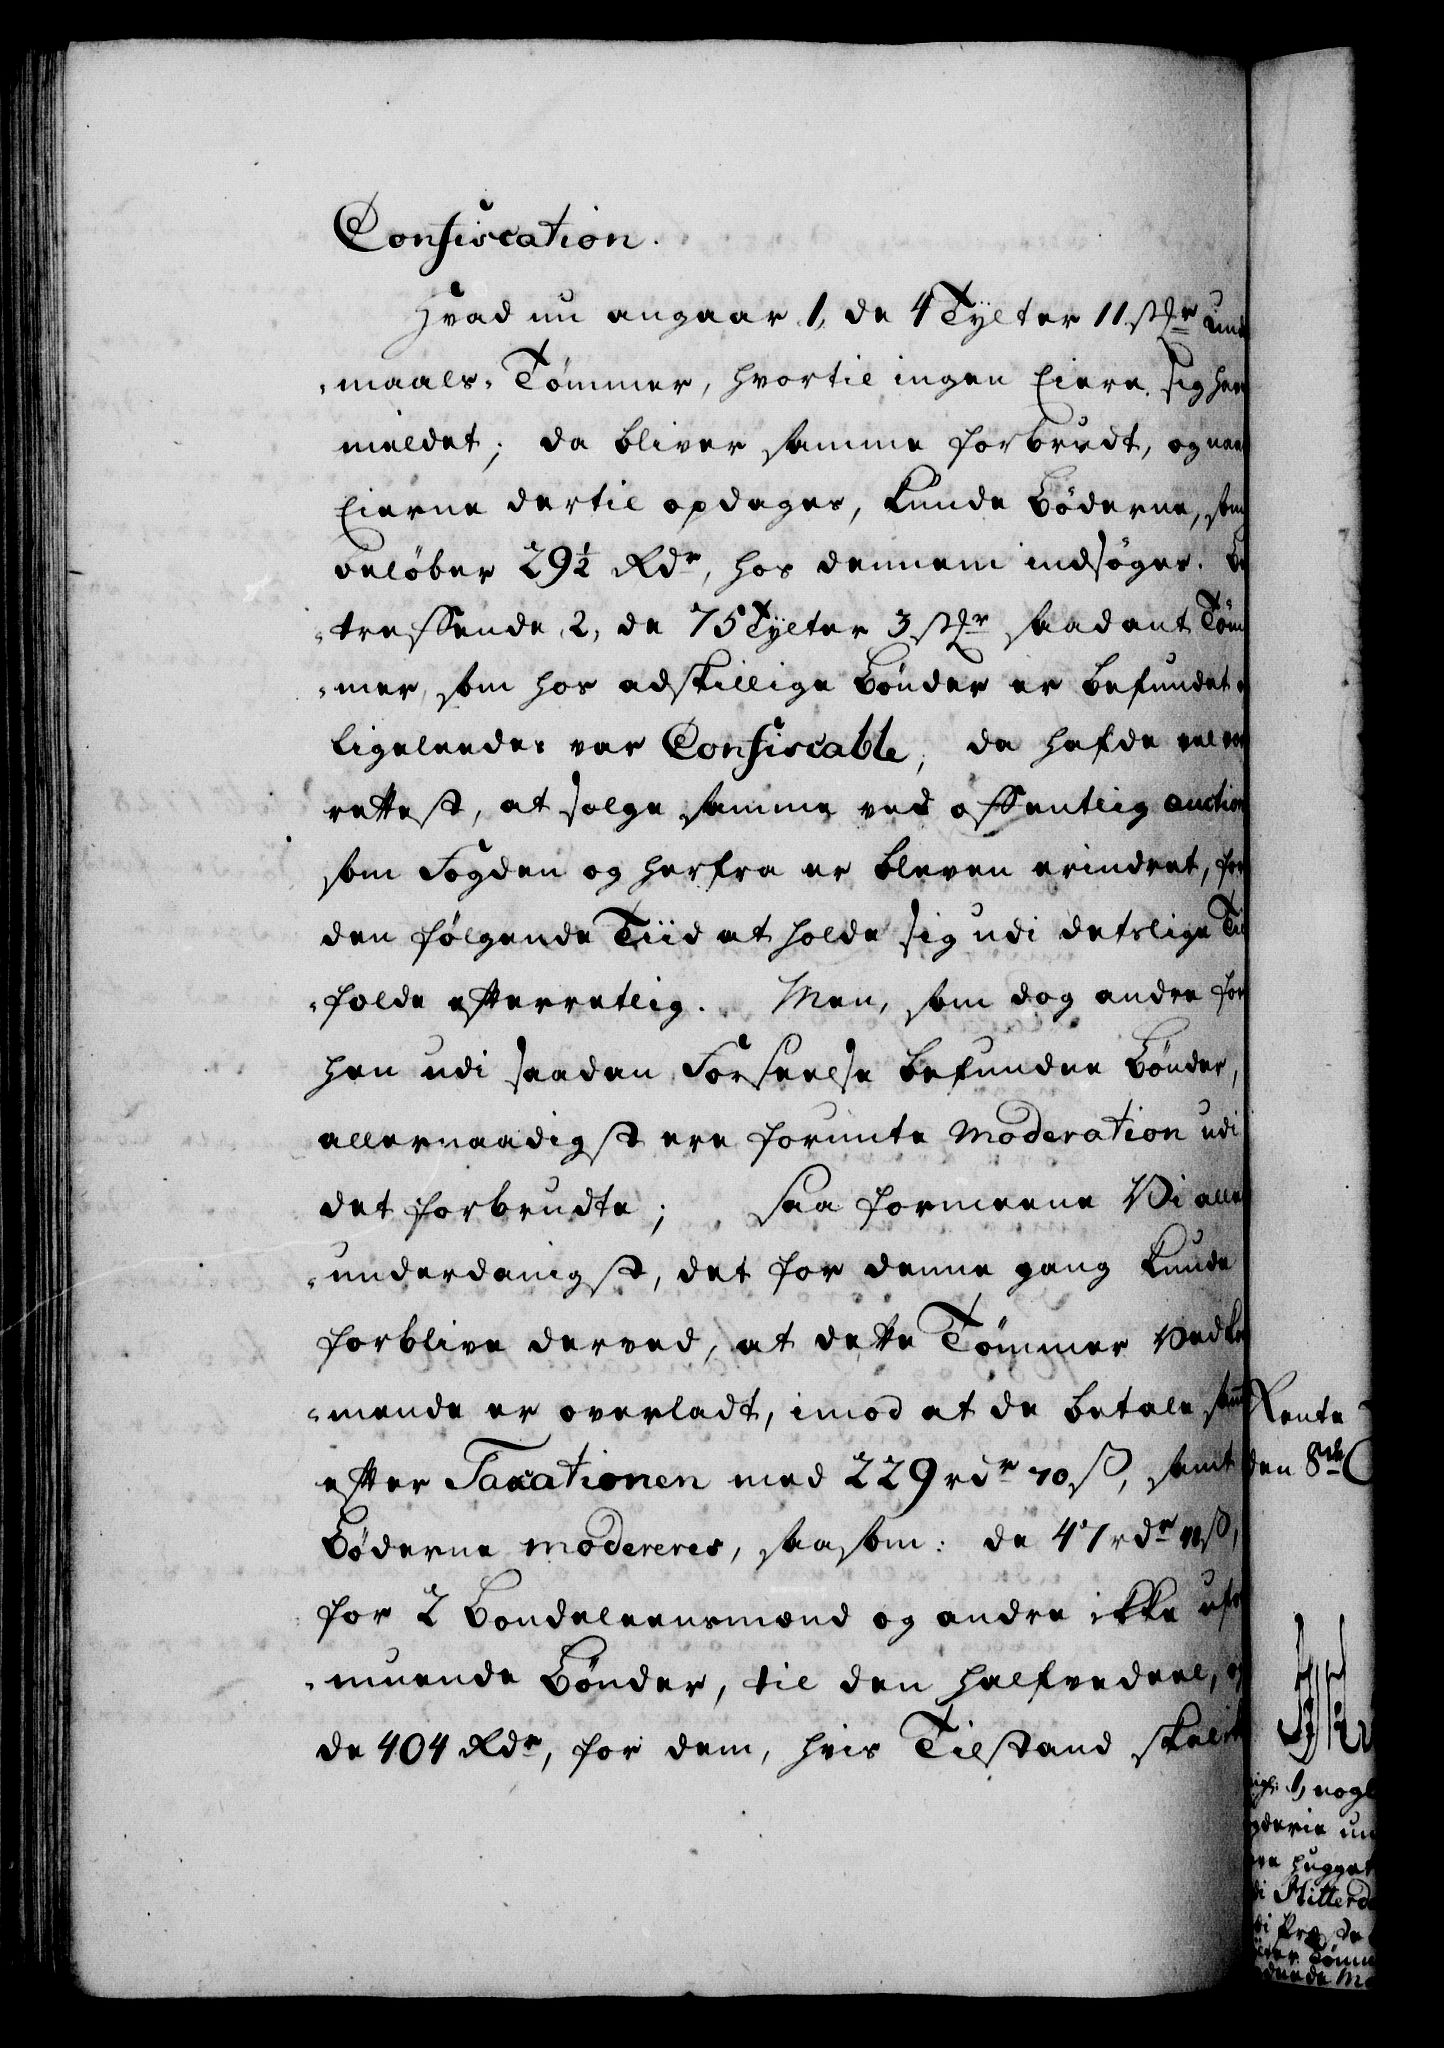 Confiscation.
Hvad nu angaar 1, de 4 Tylter 11 stkr und
-maals-Tømmer, hvortil ingen Eiere sig har
meldet; da bliver samme forbrudt, og naar
Eierne dertil opdages, kunde Bøderne, som
beløber 29½ Rdr, hos dennem indsøges. Be
-treffende 2, de 75 Tylter 3 stkr saadant Tøm
-mer, som hos adskillige Bønder er befundet og
ligeleedes var Confiscable, da hafde vel vær
rettest, at selge samme ved offentlig auction
som Fogden og herfra er bleven erindret, for
den følgende Tiid at holde sig udi deslige Til
-felde efterretlig. Men, som dog andre for
hen udi saadan Forseelse befundne Bønder,
allernaadigst ere forunte Moderation udi
det forbrudte; Saa formeene Vi aller
-underdanigst, det for denne gang kunde
forblive derved, at dette Tømmer Vedkom
-mende er overladt, imod at de betale samme
efter Taxationen med 229 rdr 70 ß, samt
Bøderne modereres, saasom: de 47 rdr 48 ß,
for 2 Bondeleensmænd og andre ikke ufor
-muende Bønder, til den halfvedeel, og
de 404 Rdr, for dem, hvis Tilstand skal ik
Rente
den 8de
1, nogle
huggat
Hitterd
Tømm